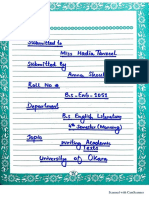 Submitted to
Miss Hadia Tanveel
Submitted by
Amna
Roll No #
B.s-Enb-2051
Department
B.S English Literature
6th Semester (Morning)
Topic
writing Academic
Texts
University of Okara
Scanned with CamScanner